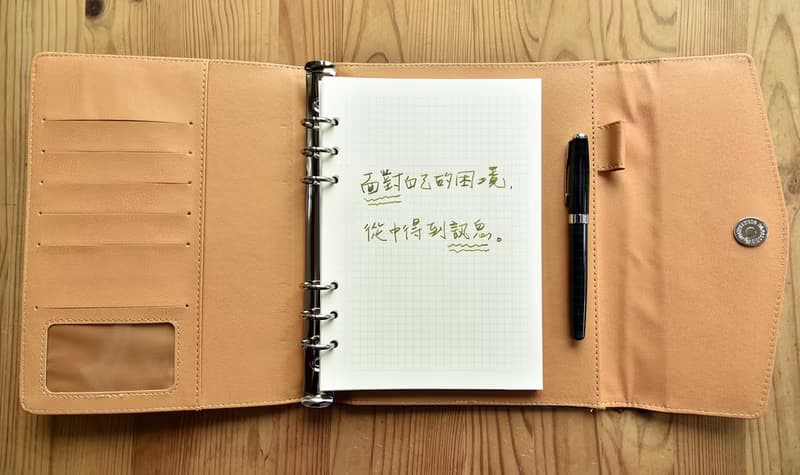 面對自己的困境，
從中得到訊息。